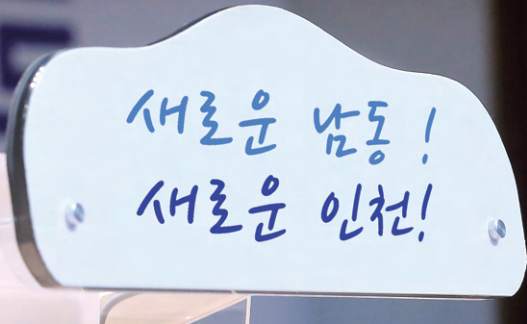 새로운 남동!
새로운 인천!